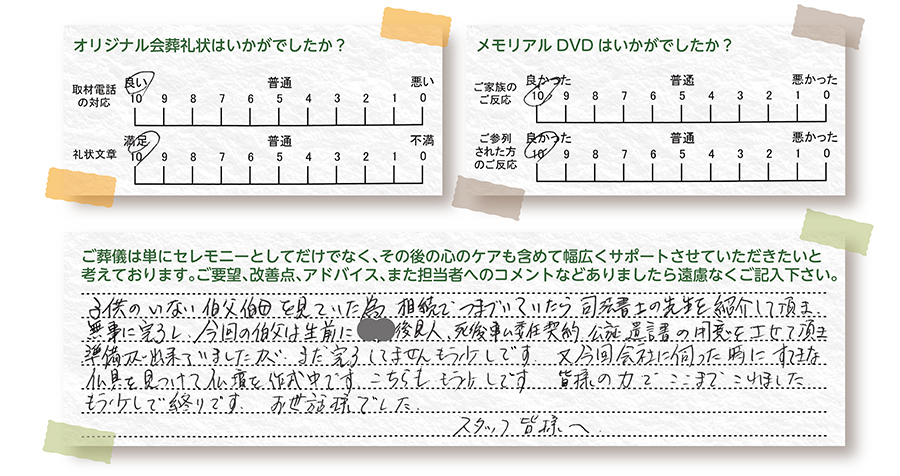 オリジナル会葬礼状はいかがでしたか？
取材電話の対応
良い 普通 悪い
10 9 8 7 6 5 4 3 2 1 0
礼状文章
満足 普通 不満
10 9 8 7 6 5 4 3 2 1 0
メモリアルDVDはいかがでしたか？
ご家族のご反応
良かった 普通 悪かった
10 9 8 7 6 5 4 3 2 1 0
ご参列された方のご反応
良かった 普通 悪かった
10 9 8 7 6 5 4 3 2 1 0
ご葬儀は単にセレモニーとしてだけでなく、その後の心のケアも含めて幅広くサポートさせていただきたいと
考えております。ご要望、改善点、アドバイス、また担当者へのコメントなどありましたら遠慮なくご記入下さい。
子供のいない伯父伯母を見ていた為 相続でつまづいていたら 司法書士の先生を紹介して頂き
無事に完了し、今回の伯父は生前に 後見人、死後事ム委任契約、公証遺言書の用意をさせて頂き
準備が出来ていましたが、まだ完了してませんもう少しです。 又今回会社に伺った時に すてきな
仏具を見つけて仏壇を作成中です。こちらも もう少しです。 皆様の力で ここまで こりました
もう少しで終りです。 お世話様でした。
スタッフ 皆様へ